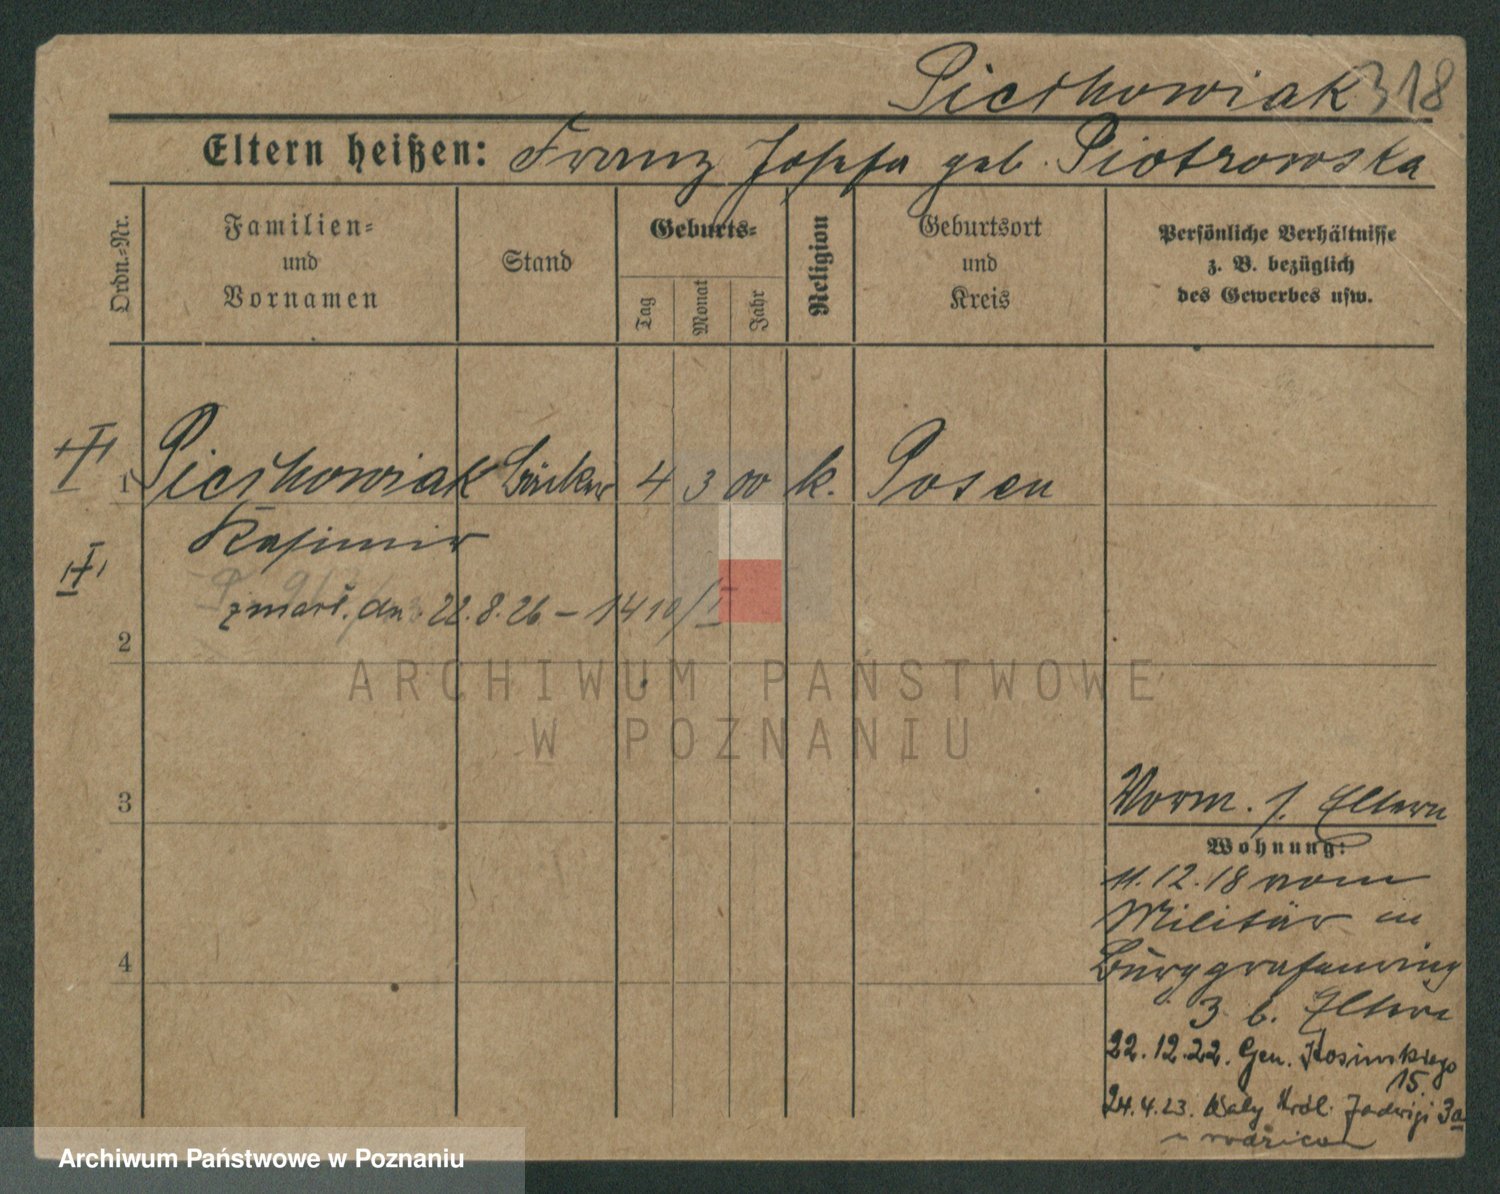 Piechowiak 318
Eltern heißen: Franz Josefa geb. Piotrowska
Ordn.-Nr.
Familien-
und
Vornamen
Stand
Geburts-
Tag
Monat
Jahr
Religion
Geburtsort
und
Kreis
Persönliche Verhältnisse
z. B. bezüglich
des Gewerbes usw.
1 Piechowiak Bäcker 4 3 00 k. Posen
Kasimir
zmarł. dn. 22.8.26 – 1410/I
2
ARCHIWUM PAŃSTWOWE
W POZNANIU
3
Vorm. s. Eltern
Wohnung:
11.12.18 vom
Militär in
Burggrafenring
3 b. Eltern
4
22.12.22. Gen. Kosinskiego
15.
24.4.23. Wały Król. Jadwigi 3a
u rodziców
Archiwum Państwowe w Poznaniu